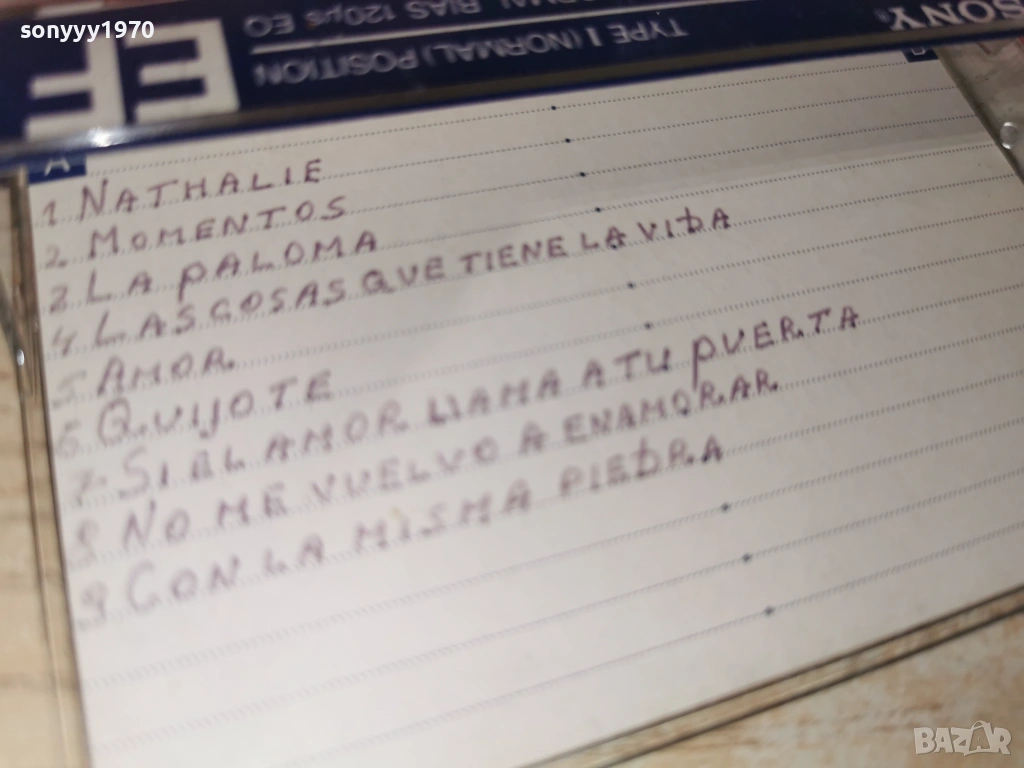 sonyyy1970
SONY
TYPE I (NORMAL) POSITION
NORMAL BIAS 120µs EQ
EF
A
1 NATHALIE
2. MOMENTOS
3 LA PALOMA
4. LAS COSAS QUE TIENE LA VIDA
5. AMOR
6 QUIJOTE
7. SI EL AMOR LLAMA A TU PUERTA
8 NO ME VUELVO A ENAMORAR
9 CON LA MISMA PIEDRA
BAZAR